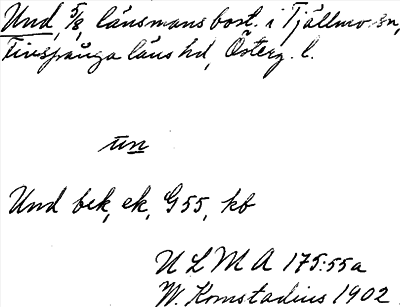 Und, 5/8 länsmans bost. i Tjällmo sn,
Finspånga läns hd, Österg. l.
un
Und bek, ek, G55, kb
ULMA 175:55a
W. Komstadius 1902